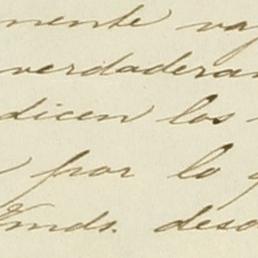 mente va
verdadera
dicen los
por lo q
Vmds. desd